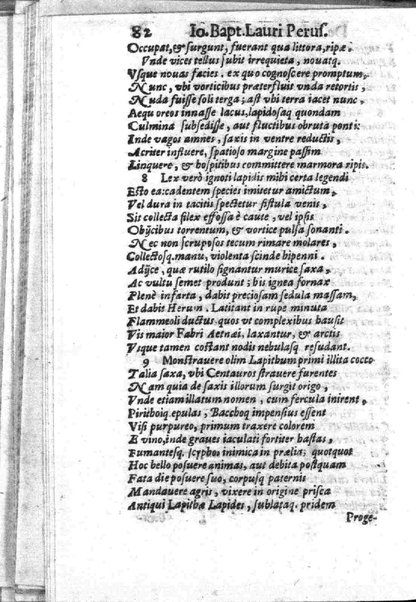 82 Io. Bapt. Lauri Perus.
Occupat, & surgunt, fuerant qua littora, ripæ.
Vnde vices tellus subit irrequieta, nouatq.
Vsque nouas facies. ex quo cognoscere promptum,
Nunc, vbi vorticibus præterfluit vnda retortis,
Nuda fuisse soli terga; ast vbi terra iacet nunc,
Aequoreos innasse lacus, lapidosaq quondam
Culmina subsedisse, aut fluctibus obruta ponti:
Inde vagos amnes, saxis in ventre reductis,
Acriter influere, spatioso margine passim
Linquere, & hospitibus committere marmora ripis.
8 Lex verò ignoti lapidis mihi certa legendi
Esto ea: cadentem species imitetur amictum,
Vel dura in tacitis spectetur fistula venis,
Sit collecta silex effossa è caute, vel ipsis
Obijcibus torrentum, & vortice pulsa sonanti.
Nec non scruposos tecum rimare molares,
Collectosq. manu, violenta scinde bipenni.
Adijce, quæ rutilo signantur murice saxa,
Ac vultu semet produnt; bis ignea fornax
Plenè infarta, dabit preciosam sedula massam,
Et dabis Herum. Latitant in rupe minuta
Flammeoli ductus quos vt complexibus hausit
Vis maior Fabri Aetnæi, laxantur, & arctis
Vtque tamen costant nodis nebulasq resudant.
9 Monstrauere olim Lapithum primi illita cocco
Talia saxa, vbi Centauros strauere furentes
Nam quia de saxis illorum surgit origo,
Vnde etiam illatum nomen, cum fercula inirent,
Pirithoiq. epulas, Bacchoq impensius essent
Visi purpureo, primum traxere colorem
E vino, inde graues iaculati fortiter hastas,
Fumantesq. scyphos inimica in prælia; quotquot
Hoc bello posuere animas, aut debita postquam
Fata die posuere suo, corpusq paternis
Mandauere agris, vixere in origine prisca
Antiqui Lapithæ Lapides, sublataq. pridem
Proge-